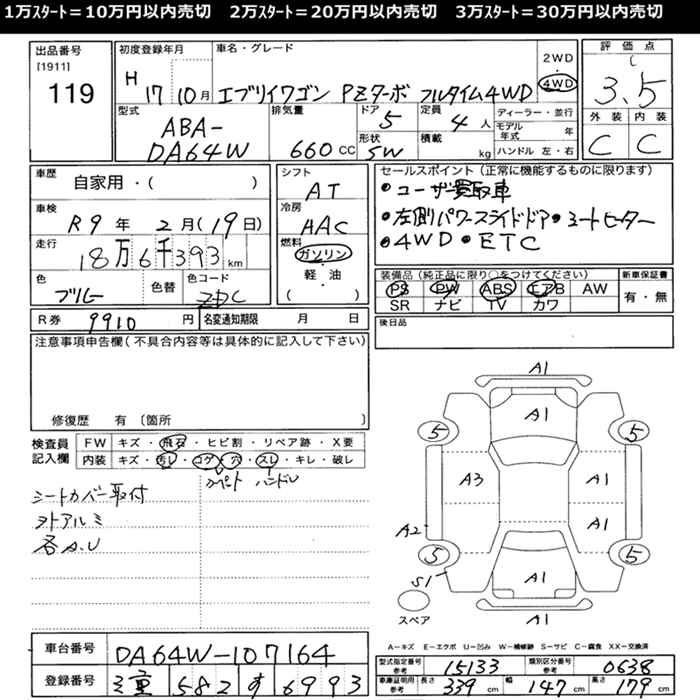 1万スタート＝10万円以内売切 2万スタート＝20万円以内売切 3万スタート＝30万円以内売切
出品番号
[1911]
119
初度登録年月
H 17 10月
車名・グレード
エブリイワゴン PZターボ フルタイム4WD
2WD
・
4WD
評価点
3.5
外装 内装
C C
型式
ABA-
DA64W
排気量
660 CC
ドア
5
形状
5W
定員
4 人
積載
kg
ディーラー・並行
モデル年式 年
ハンドル 左・右
車歴
自家用・( )
車検
R9年 2月(19日)
走行
18万6千393 km
色
ブルー
色替
色コード
ZJC
シフト
AT
冷房
AAC
燃料
ガソリン
・
軽・油
( )
セールスポイント（正常に機能するものに限ります）
・ユーザー買取車
・左側パワースライドドア・シートヒーター
・4WD・ETC
装備品（純正品に限り○をつけてください）
PS PW ABS エアB AW
SR ナビ TV カワ
新車保証書
有・無
R券 9910 円
名変通知期限 月 日
後日品
注意事項申告欄（不具合内容等は具体的に記入して下さい）
修復歴 有〔箇所 〕
検査員
記入欄
FW キズ・飛石・ヒビ割・リペア跡・X要
内装 キズ・汚レ・コゲ・穴・スレ・キレ・破レ
カペット ハンドル
シートカバー取付
外アルミ
各A.U
A1
A1
5 5
A3 A1
A1
A2
5 5
S1
A1
スペア
A1
A－キズ E－エクボ U－凹み W－補修跡 S－サビ C－腐食 XX－交換済
車台番号
DA64W-107164
登録番号
三重 582 す 6993
型式指定番号 参考 15133
類別区分番号 参考 0638
車庫証明用 参考 長さ 339 cm 幅 147 cm 高さ 179 cm